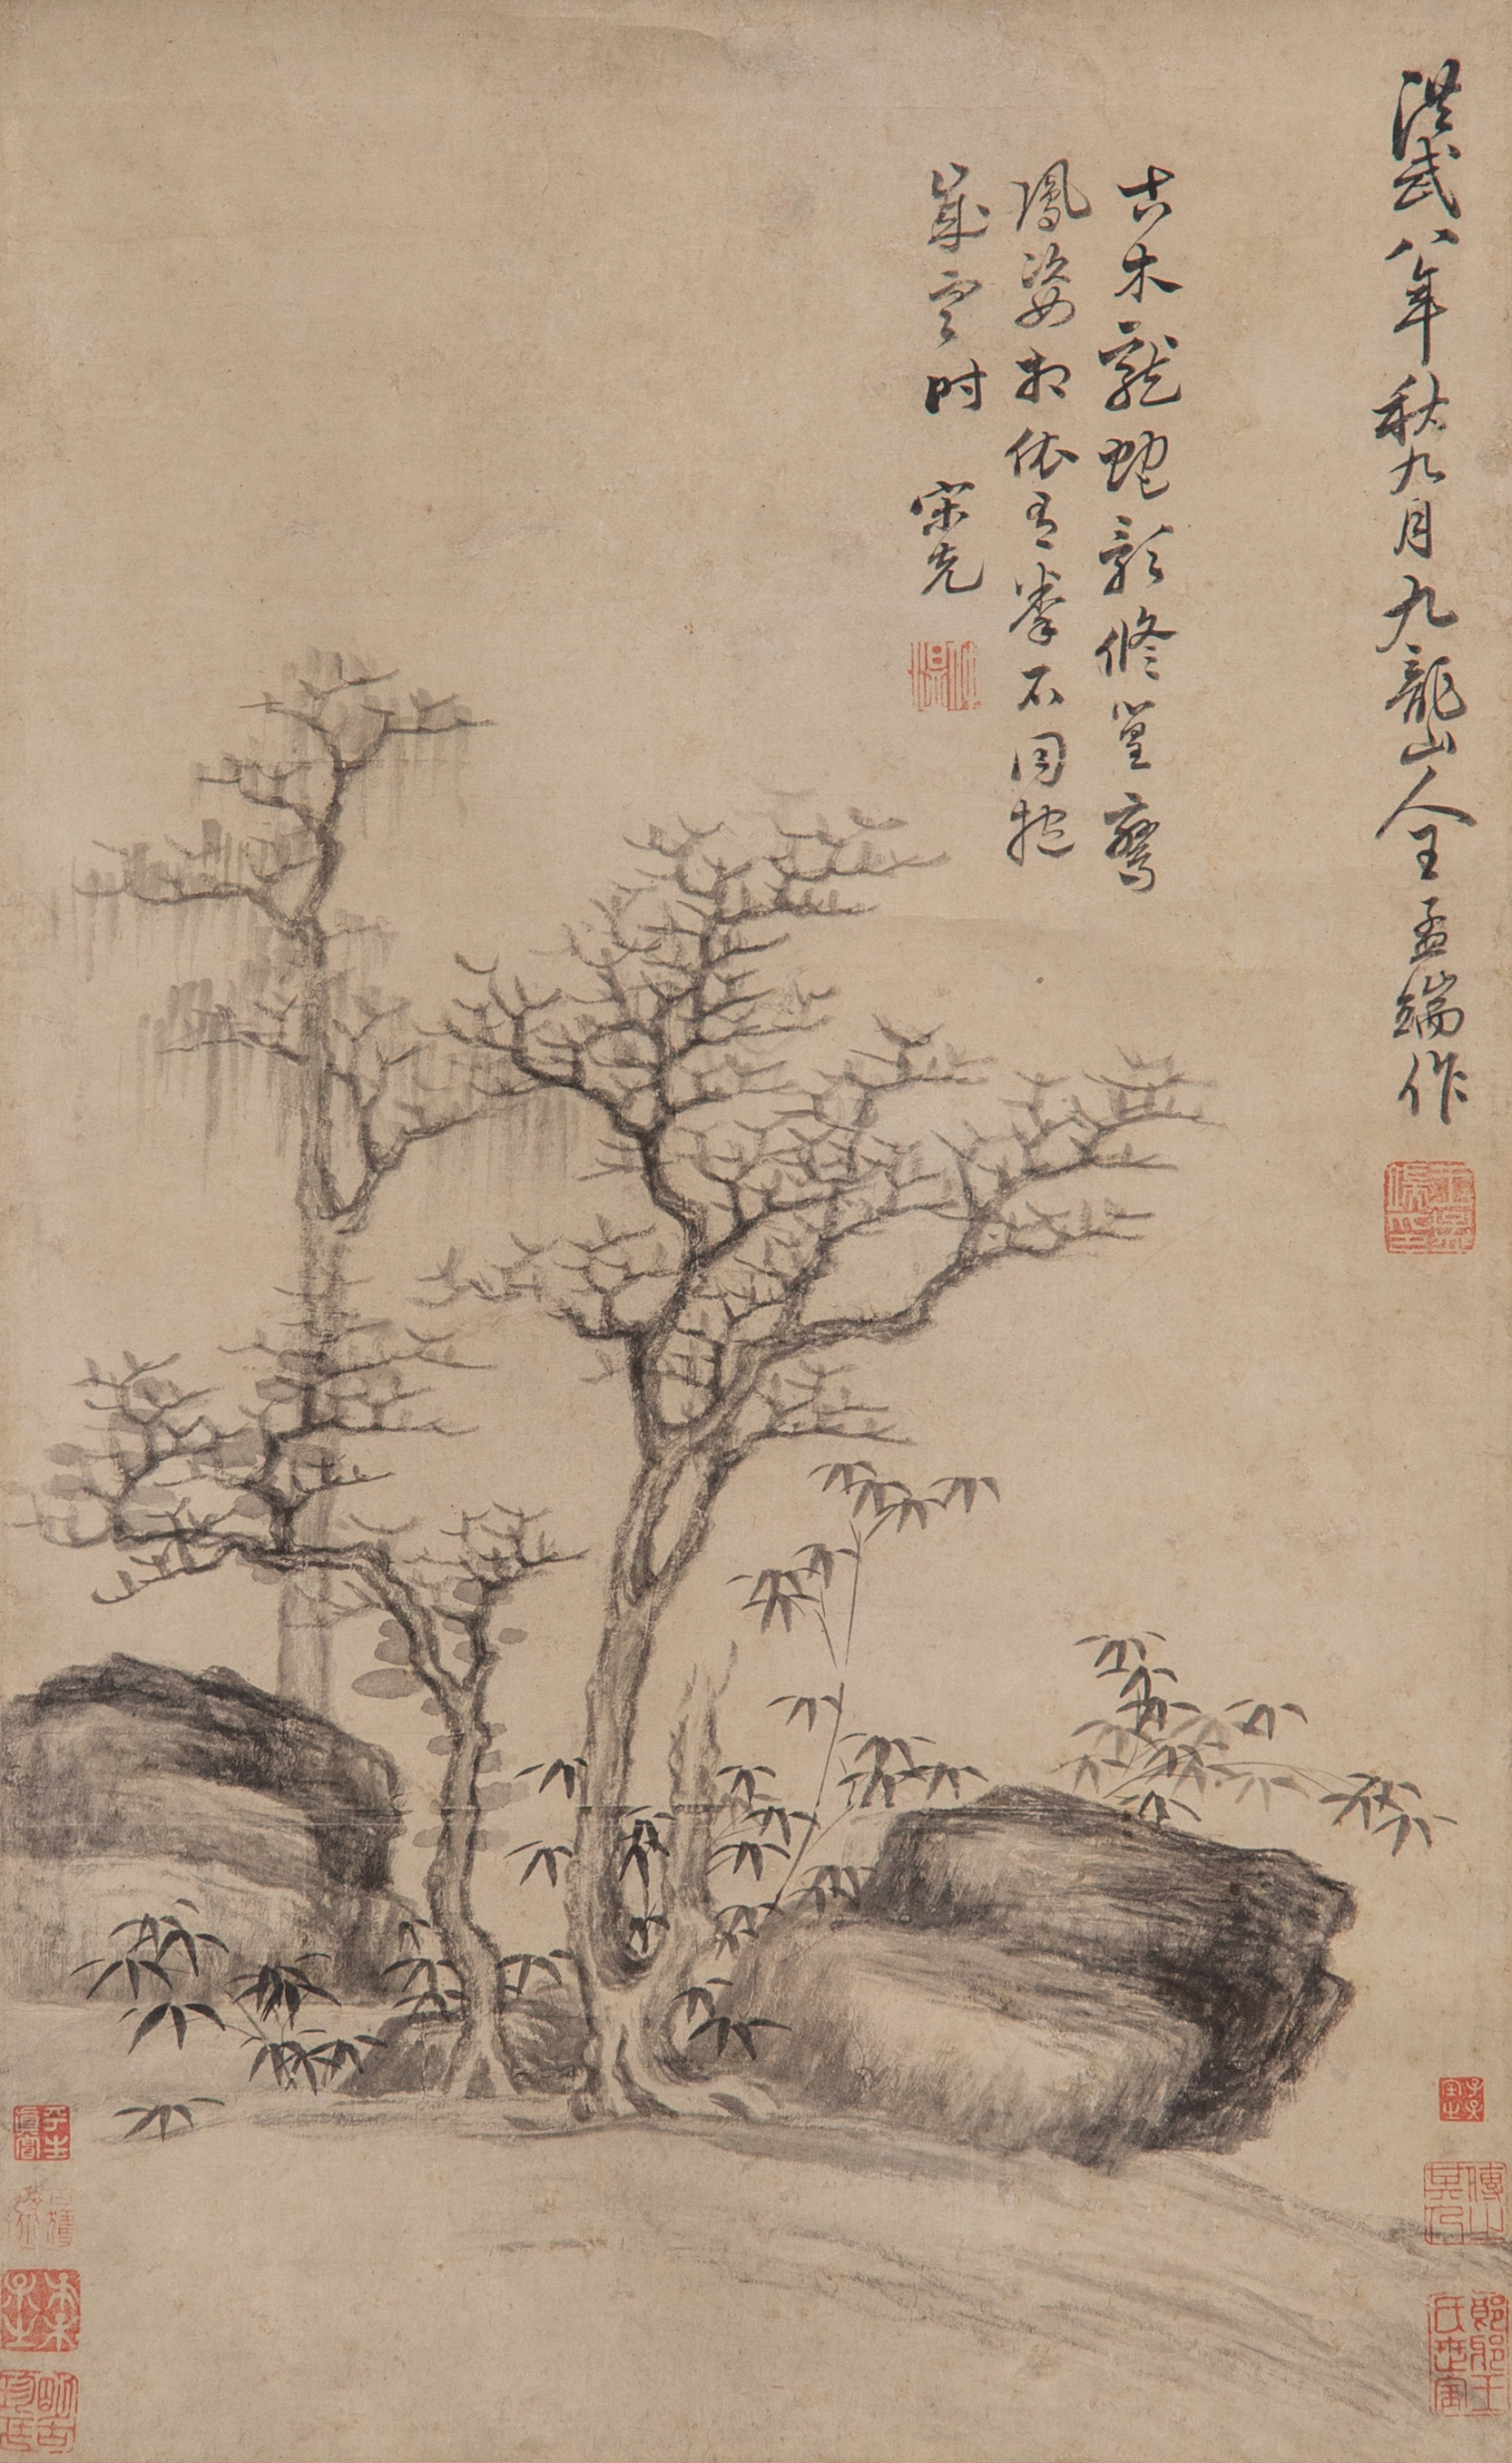 洪武八年秋九月九龍山人王孟端作
古木龍蛇影修篁鸞
鳳姿相依有拳石同抱
歲寒时 宋克